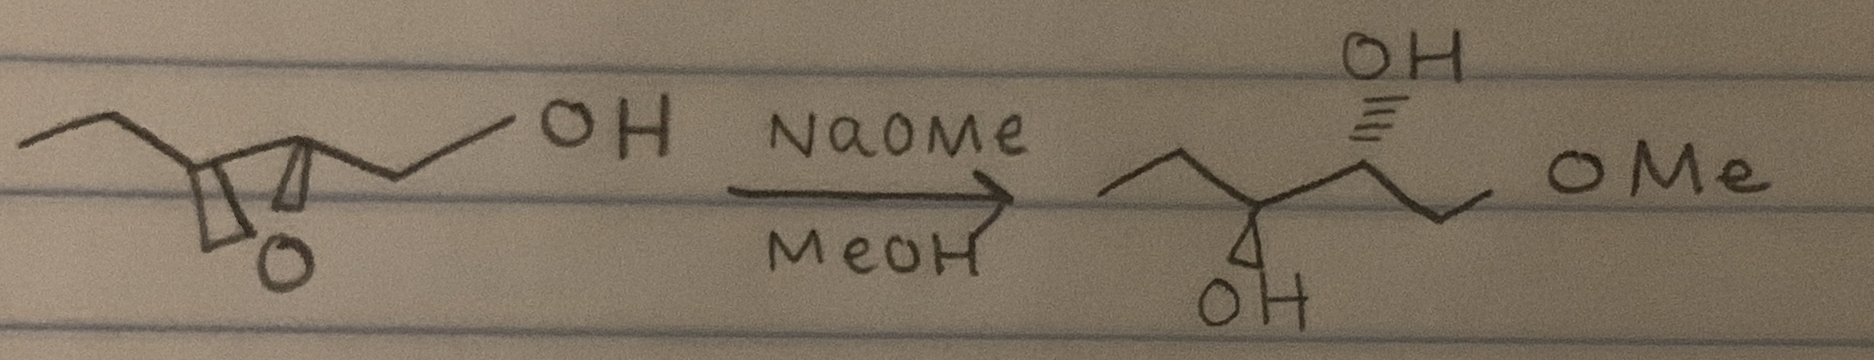 OH
OH
NaOMe
OMe
MeOH
O
OH